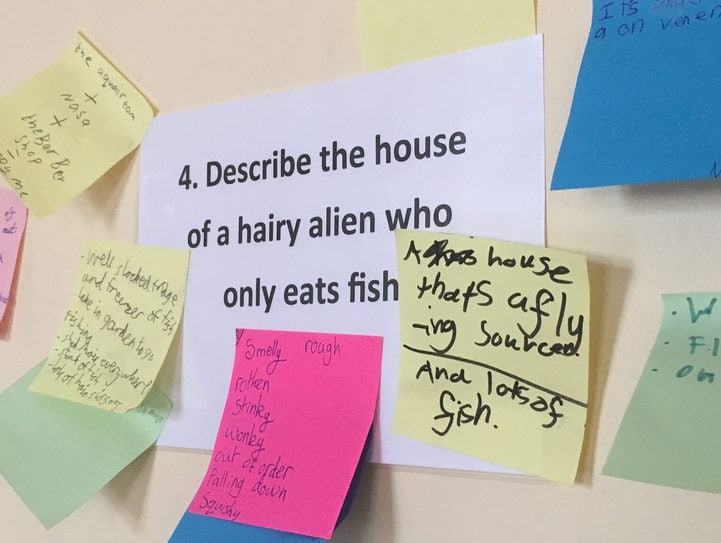 4. Describe the house
of a hairy alien who
only eats fish
the aquairiam
+
Nasa
+
theBarBer
Shop
=
me
out
· Well stocked fridge
and freezer of fish
lake in garden to go
fishing
everywhere
Smelly rough
rotten
Stinky
wonky
out of order
falling down
Squishy
A house
thats afly
-ing sourced
And lots of
fish.
Its
a on vener
N
· W
· Fl
· on